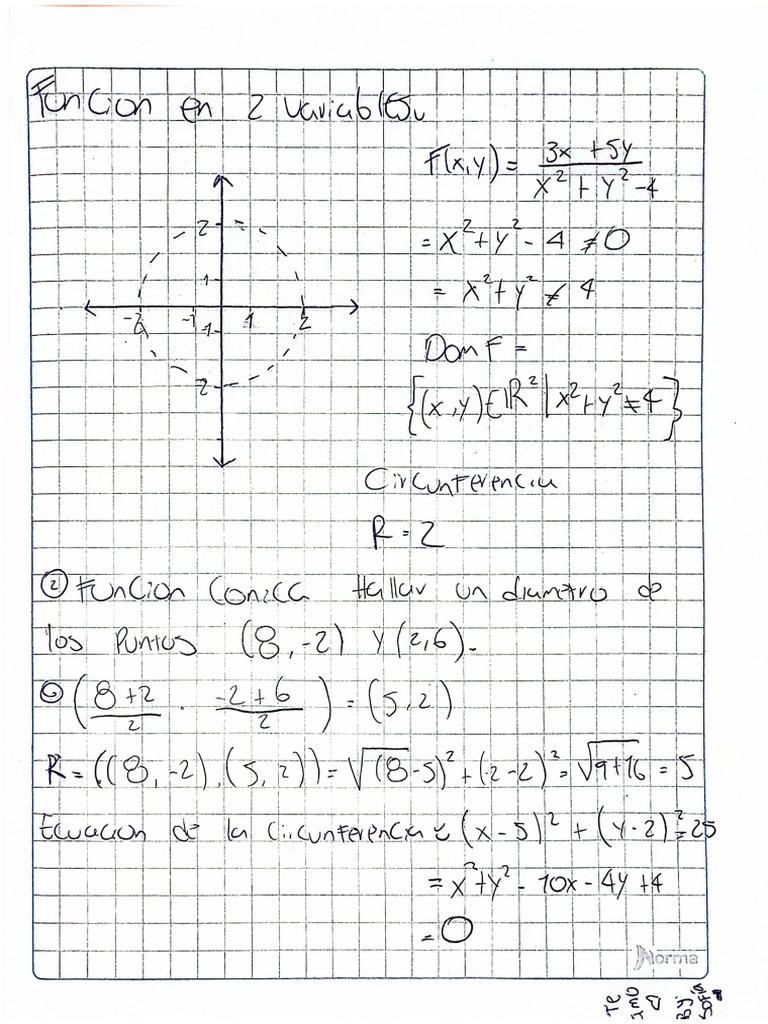 Funcion en 2 variables
F(x,y) = (3x + 5y)/(x² + y² - 4)
= x² + y² - 4 ≠ 0
= x² + y² ≠ 4
Dom F =
{(x,y) ∈ ℝ² | x² + y² ≠ 4}
2
1
-2 -1 1 2
-1
-2
Circunferencia
R = 2
② Funcion Conica Hallar un diametro de
los Puntos (8,-2) y (2,6).
(8+2/2 . -2+6/2) = (5,2)
R = ((8,-2),(5,2)) = √(8-5)² + (-2-2)² = √9+16 = 5
Ecuacion de la Circunferencia (x-5)² + (y-2)² = 25
= x² + y² - 10x - 4y + 4
= 0
Norma